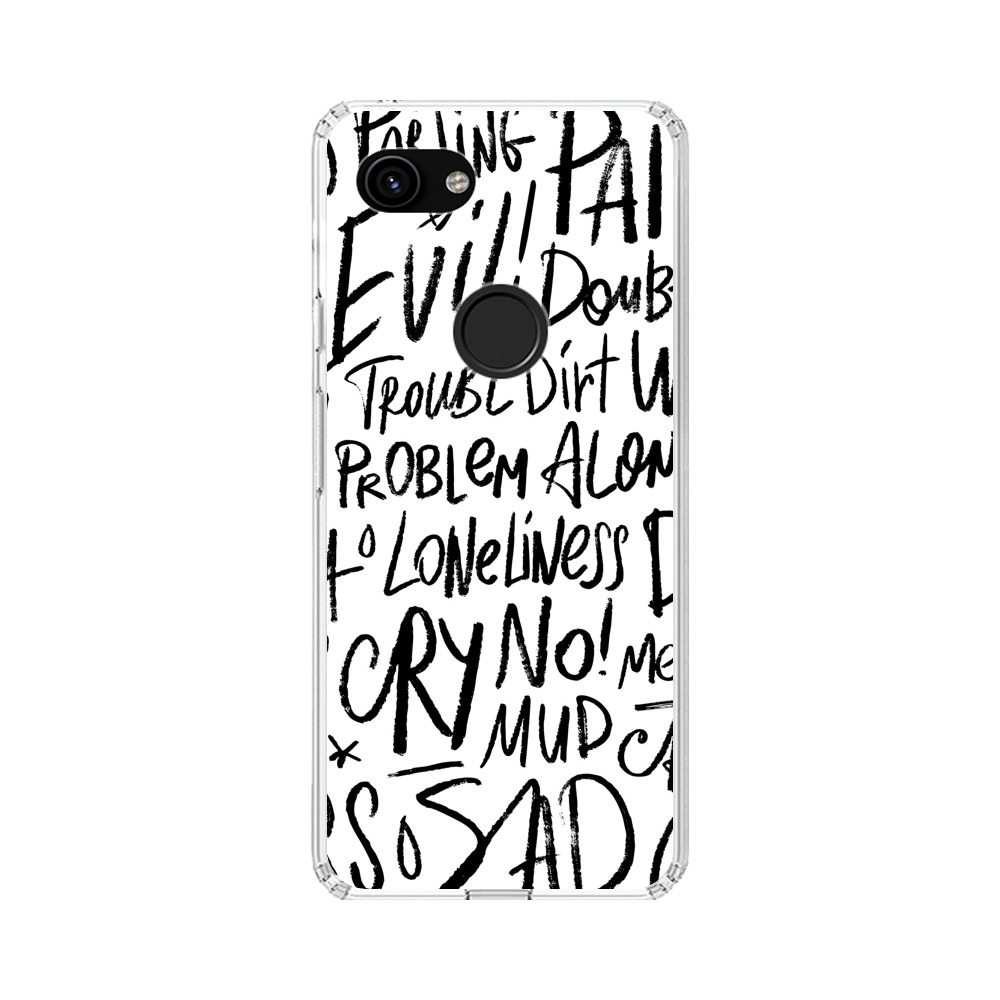 PARTING PAI
EVIL! DOUB
TROUBLE Dirt W
PROBLEM ALON
LONELINESS D
CRY NO! ME
MUD JA
SO SAD